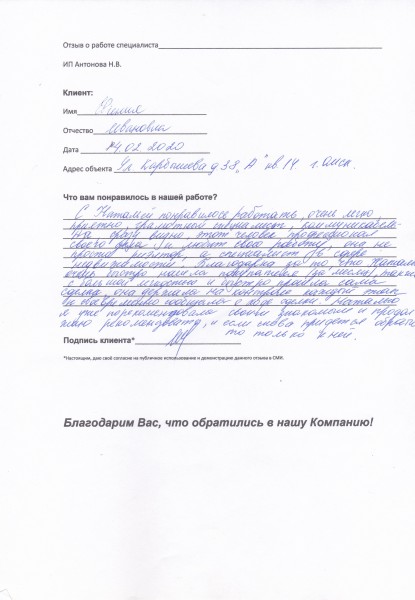 Отзыв о работе специалиста
ИП Антонова Н.В.
Клиент:
Имя Юлия
Отчество Ивановна
Дата 14.02.2020
Адрес объекта Ул. Карбышева д 38 "А" кв. 14 г. Омск.
Что вам понравилось в нашей работе?
С Наталией понравилось работать, очень легко,
приятно, грамотный специалист,
сразу видно, этот человек профессионал
своего дела и любит свою работу, она не
просто риэлтор, а специалист в сфере
недвижимости. Благодарна за то, что Наталия
очень быстро нашла покупателя
с большой и быстро прошла сама
сделка, она держала на контроле каждый этап
о ходе сделки. Наталию
я уже порекомендовала своим знакомым и
рекомендовать, и если снова придется
то только к ней.
Подпись клиента*
*Настоящим, даю своё согласие на публичное использование и демонстрацию данного отзыва в СМИ.
Благодарим Вас, что обратились в нашу Компанию!